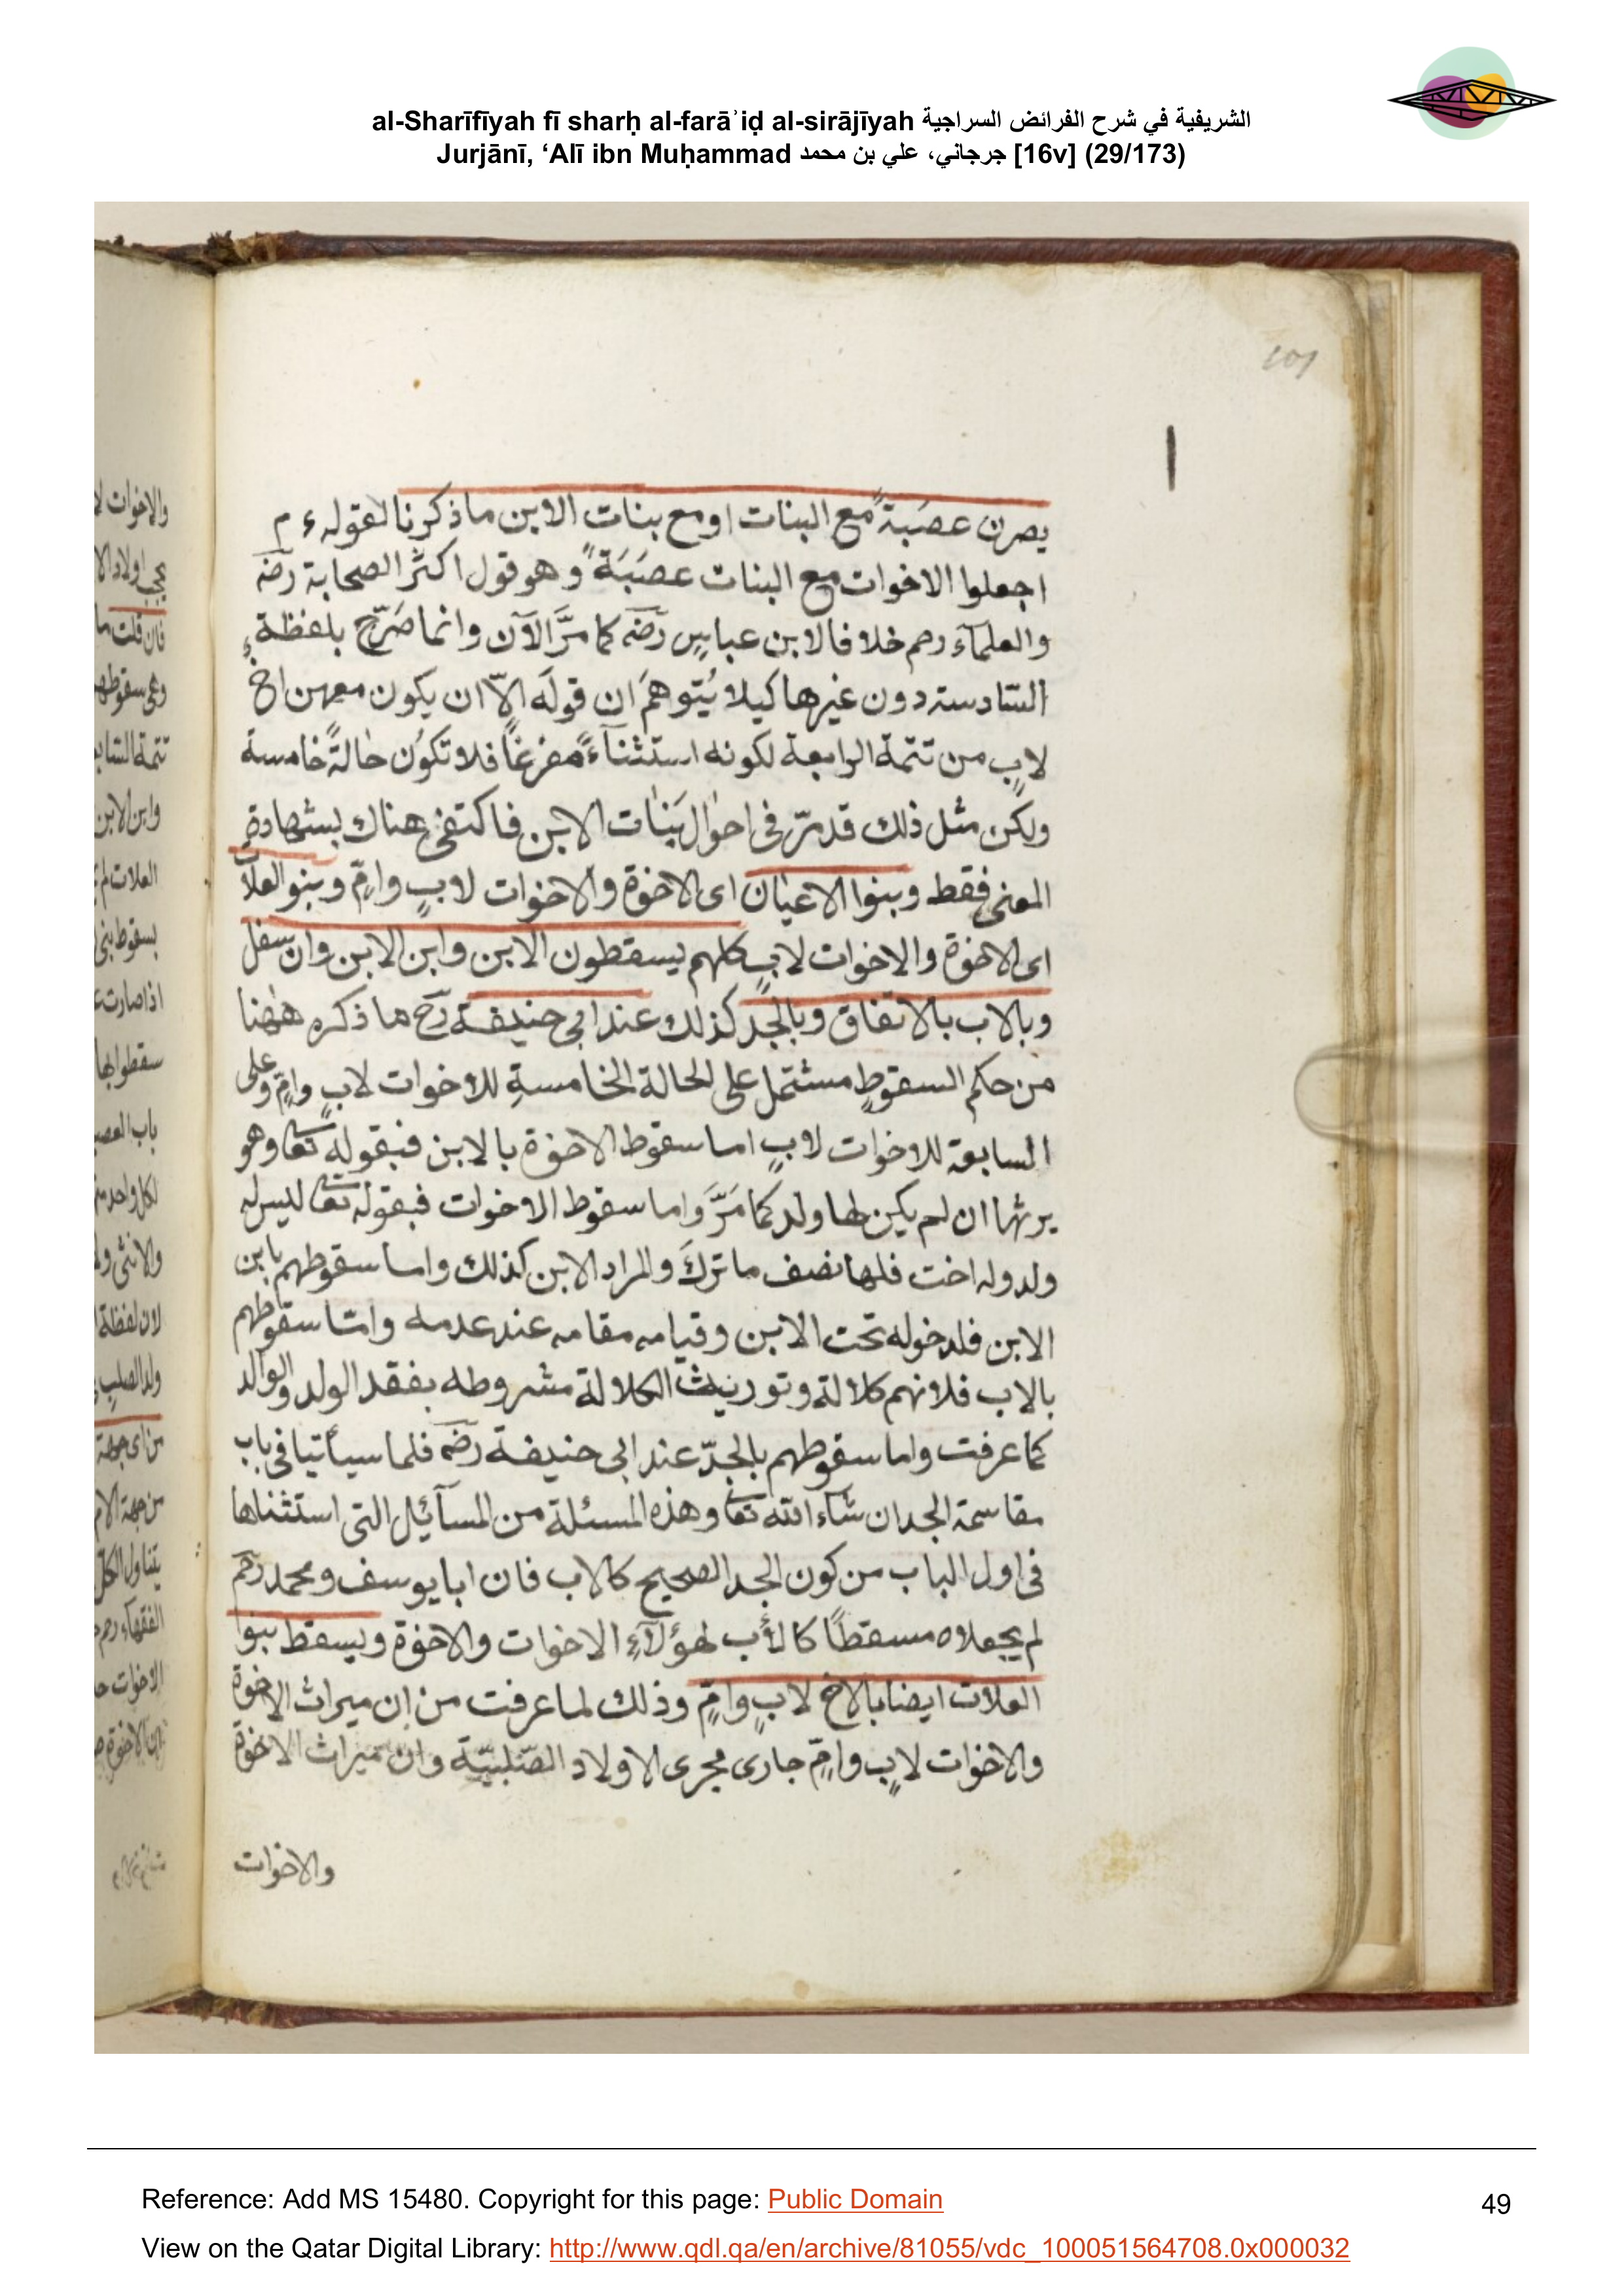 al-Sharīfīyah fī sharḥ al-farāʾiḍ al-sirājīyah الشريفية في شرح الفرائض السراجية
Jurjānī, ‘Alī ibn Muḥammad جرجاني، علي بن محمد [16v] (29/173)
يصرن عصَبةً مع البنات او مع بنات الابن ما ذكرنا لقوله ء م
اجعلوا الاخوات مع البنات عصَبَةً وهو قول اكثر الصحابة رضه
والعلمآء رحم خلافا لابن عباسٍ رضه كما مرَّ الآن وانما صَرّح بلفظة
السّادسته دون غيرها كيلا يُتوهمَ ان قولَه الّا ان يكون معهن اخ
لابٍ من تتمّة الرابعة لكونه استثنآءً مفرغاً فلا تكوُن حالةً خامسة
ولكن مثل ذلك قد مرّ فى احوال بَنات الابن فاكتفى هناك بشهادة
المعنى فقط وبنوا الاعيان اى الاخوة والاخوات لابٍ وامٍّ وبنو العلا
اى الاخوة والاخوات لابٍ كلهم يسقطون الابن وابن الابن وان سفل
وبالاب بالاتفاق وبالجدّ كذلك عند ابى حنيفة رح ما ذكره ههنا
من حكم السقوطِ مشتمل على الحالة الخامسةِ للاخوات لابٍ وامٍّ وعلى
السابعة للاخوات لابٍ اما سقوط الاخوة بالابن فبقوله تعا وهو
يرثها ان لم يكن لها ولد كما مَرَّ واما سقوط الاخوات فبقوله تعا ليس له
ولد وله اخت فلها نصف ما تركَ والمراد الابن كذلك واما سقوطهم بابن
الابن فلدخوله تحت الابن وقيامه مقامه عند عدمه وامّا سقوطهم
بالاب فلانهم كلالة وتوريث الكلالة مشروطه بفقد الولد والوالد
كما عرفت واما سقوطهم بالجدّ عند ابى حنيفة رضه فلما سيأتيا فى باب
مقاسمة الجد ان شآء الله تعا وهذه المسئلة من المسآئيل التى استثناها
فى اول الباب من كون الجد الصحيح كالاب فان ابا يوسف ومحمد رحم
لم يجعلاه مسقطًا كالأب لهؤلآءِ الاخوات والاخوة ويسقط بنوا
العلات ايضا بالاخ لابٍ وامٍّ وذلك لما عرفت من ان ميراث الاخوة
والاخوات لابٍ وامٍّ جارى مجرى الاولاد الصّلبيّة وان ميراث الاخوة
والاخوات
Reference: Add MS 15480. Copyright for this page: Public Domain
49
View on the Qatar Digital Library: http://www.qdl.qa/en/archive/81055/vdc_100051564708.0x000032